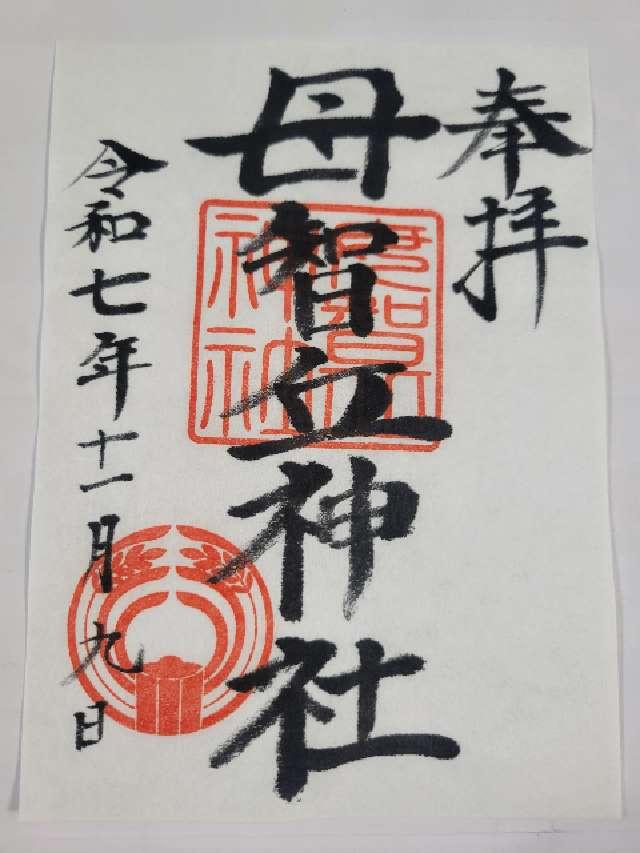 奉拝
母智丘神社
母智丘
神社
令和七年十一月九日